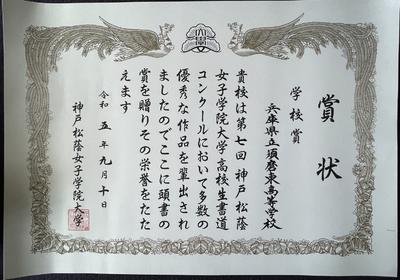 賞状
学校賞
兵庫県立須磨東高等学校
貴校は第七回神戸松蔭
女子学院大学高校生書道
コンクールにおいて多数の
優秀な作品を輩出され
ましたのでここに頭書の
賞を贈りその栄誉をたた
えます
令和五年九月十日
神戸松蔭女子学院大学